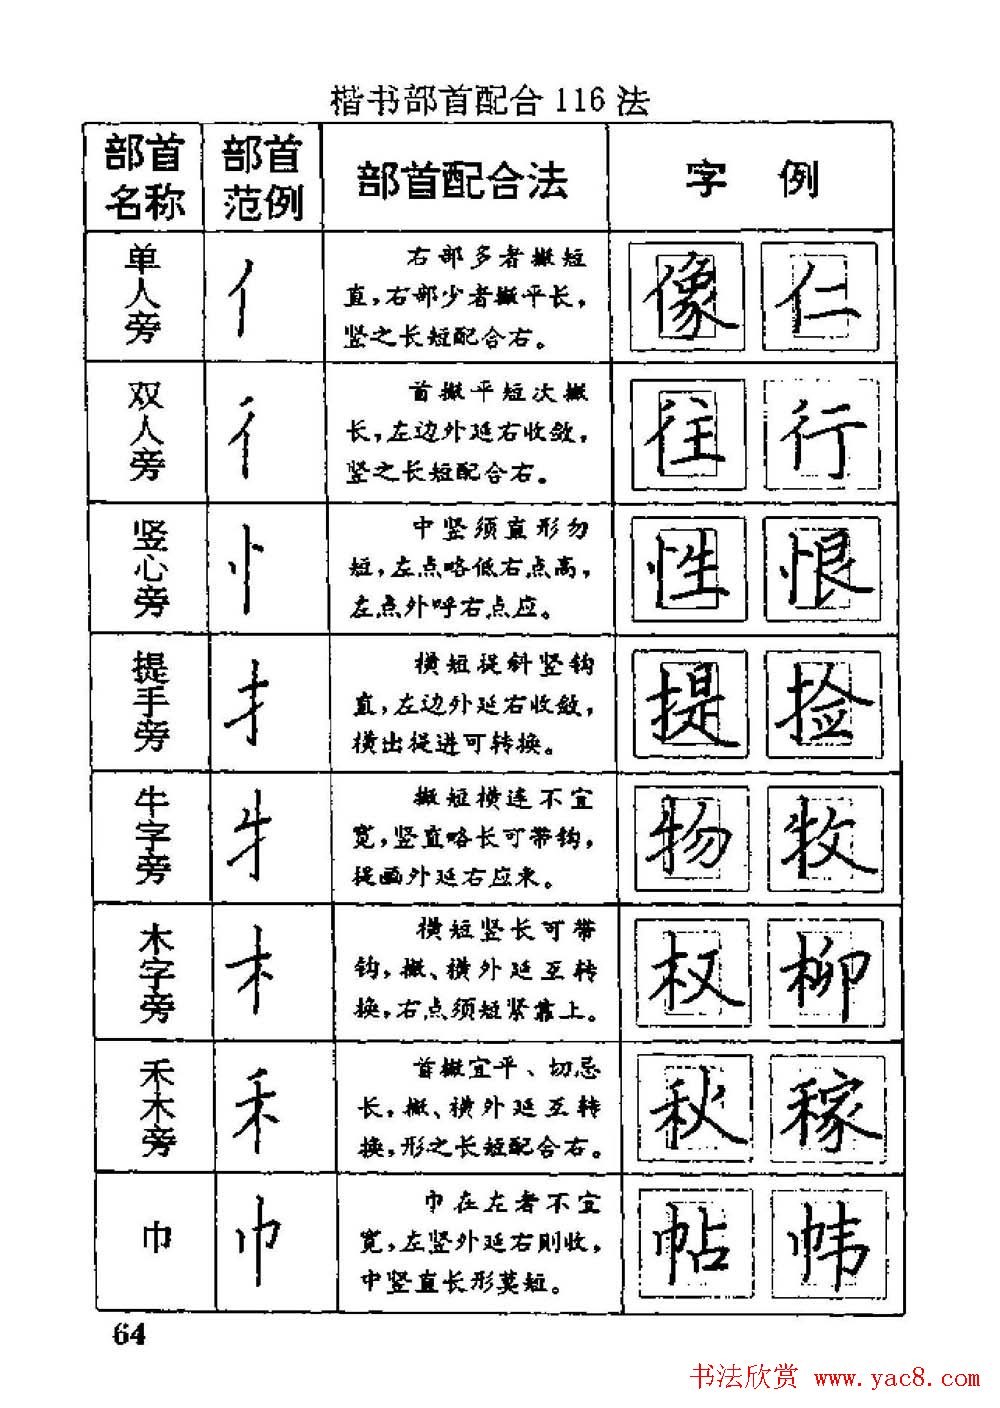 楷书部首配合116法
部首名称 部首范例 部首配合法 字 例
单人旁 亻 右部多者撇短
直,右部少者撇平长,
竖之长短配合右。 像 仁
双人旁 彳 首撇平短次撇
长,左边外延右收敛,
竖之长短配合右。 往 行
竖心旁 忄 中竖须直形勿
短,左点略低右点高,
左点外呼右点应。 性 恨
提手旁 扌 横短提斜竖钩
直,左边外延右收敛,
横出提进可转换。 提 捡
牛字旁 牜 撇短横连不宜
宽,竖直略长可带钩,
提画外延右应来。 物 牧
木字旁 木 横短竖长可带
钩,撇、横外延互转
换,右点须短紧靠上。 权 柳
禾木旁 禾 首撇宜平、切忌
长,撇、横外延互转
换,形之长短配合右。 秋 稼
巾 巾 巾在左者不宜
宽,左竖外延右则收,
中竖直长形莫短。 帖 帏
64
书法欣赏 www.yac8.com